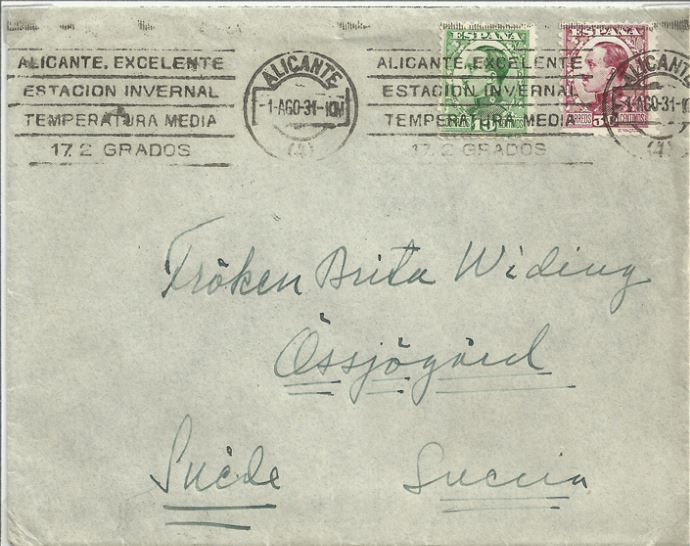 ESPAÑA ESPAÑA
ALICANTE, EXCELENTE ALICANTE ALICANTE, EXCELENTE ALICANTE
ESTACION INVERNAL ESTACION INVERNAL
-1-AGO-31- -1-AGO-31-
TEMPERATURA MEDIA TEMPERATURA MEDIA
17,2 GRADOS (4) 17,2 GRADOS (4)
Fröken Brita Widing
Össjögård
Suède Suecia